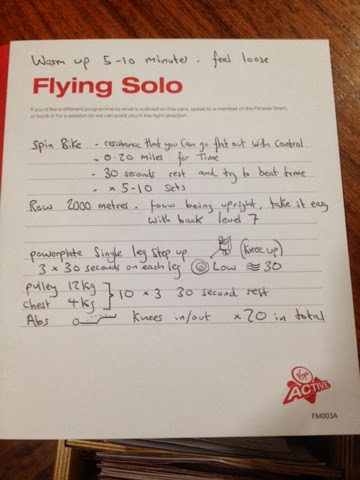 Warm up 5-10 minutes. feel loose
Flying Solo
If you'd like a different programme to what's outlined on this card, speak to a member of the Fitness Team,
or book in for a session so we can point you in the right direction.
Spin Bike - resistance that you can go flat out with control
- 0.20 miles for Time
- 30 seconds rest and try to beat time
- x 5-10 sets
Row 2000 metres. focus being upright, take it easy
with back level 7
powerplate Single leg Step up (Knee up)
3 x 30 seconds on each leg Low ≈ 30
pulley 12kg
chest 4kg } 10 x 3 30 second rest
Abs Knees in/out x20 in total
Virgin
ACTIVE
FM003A